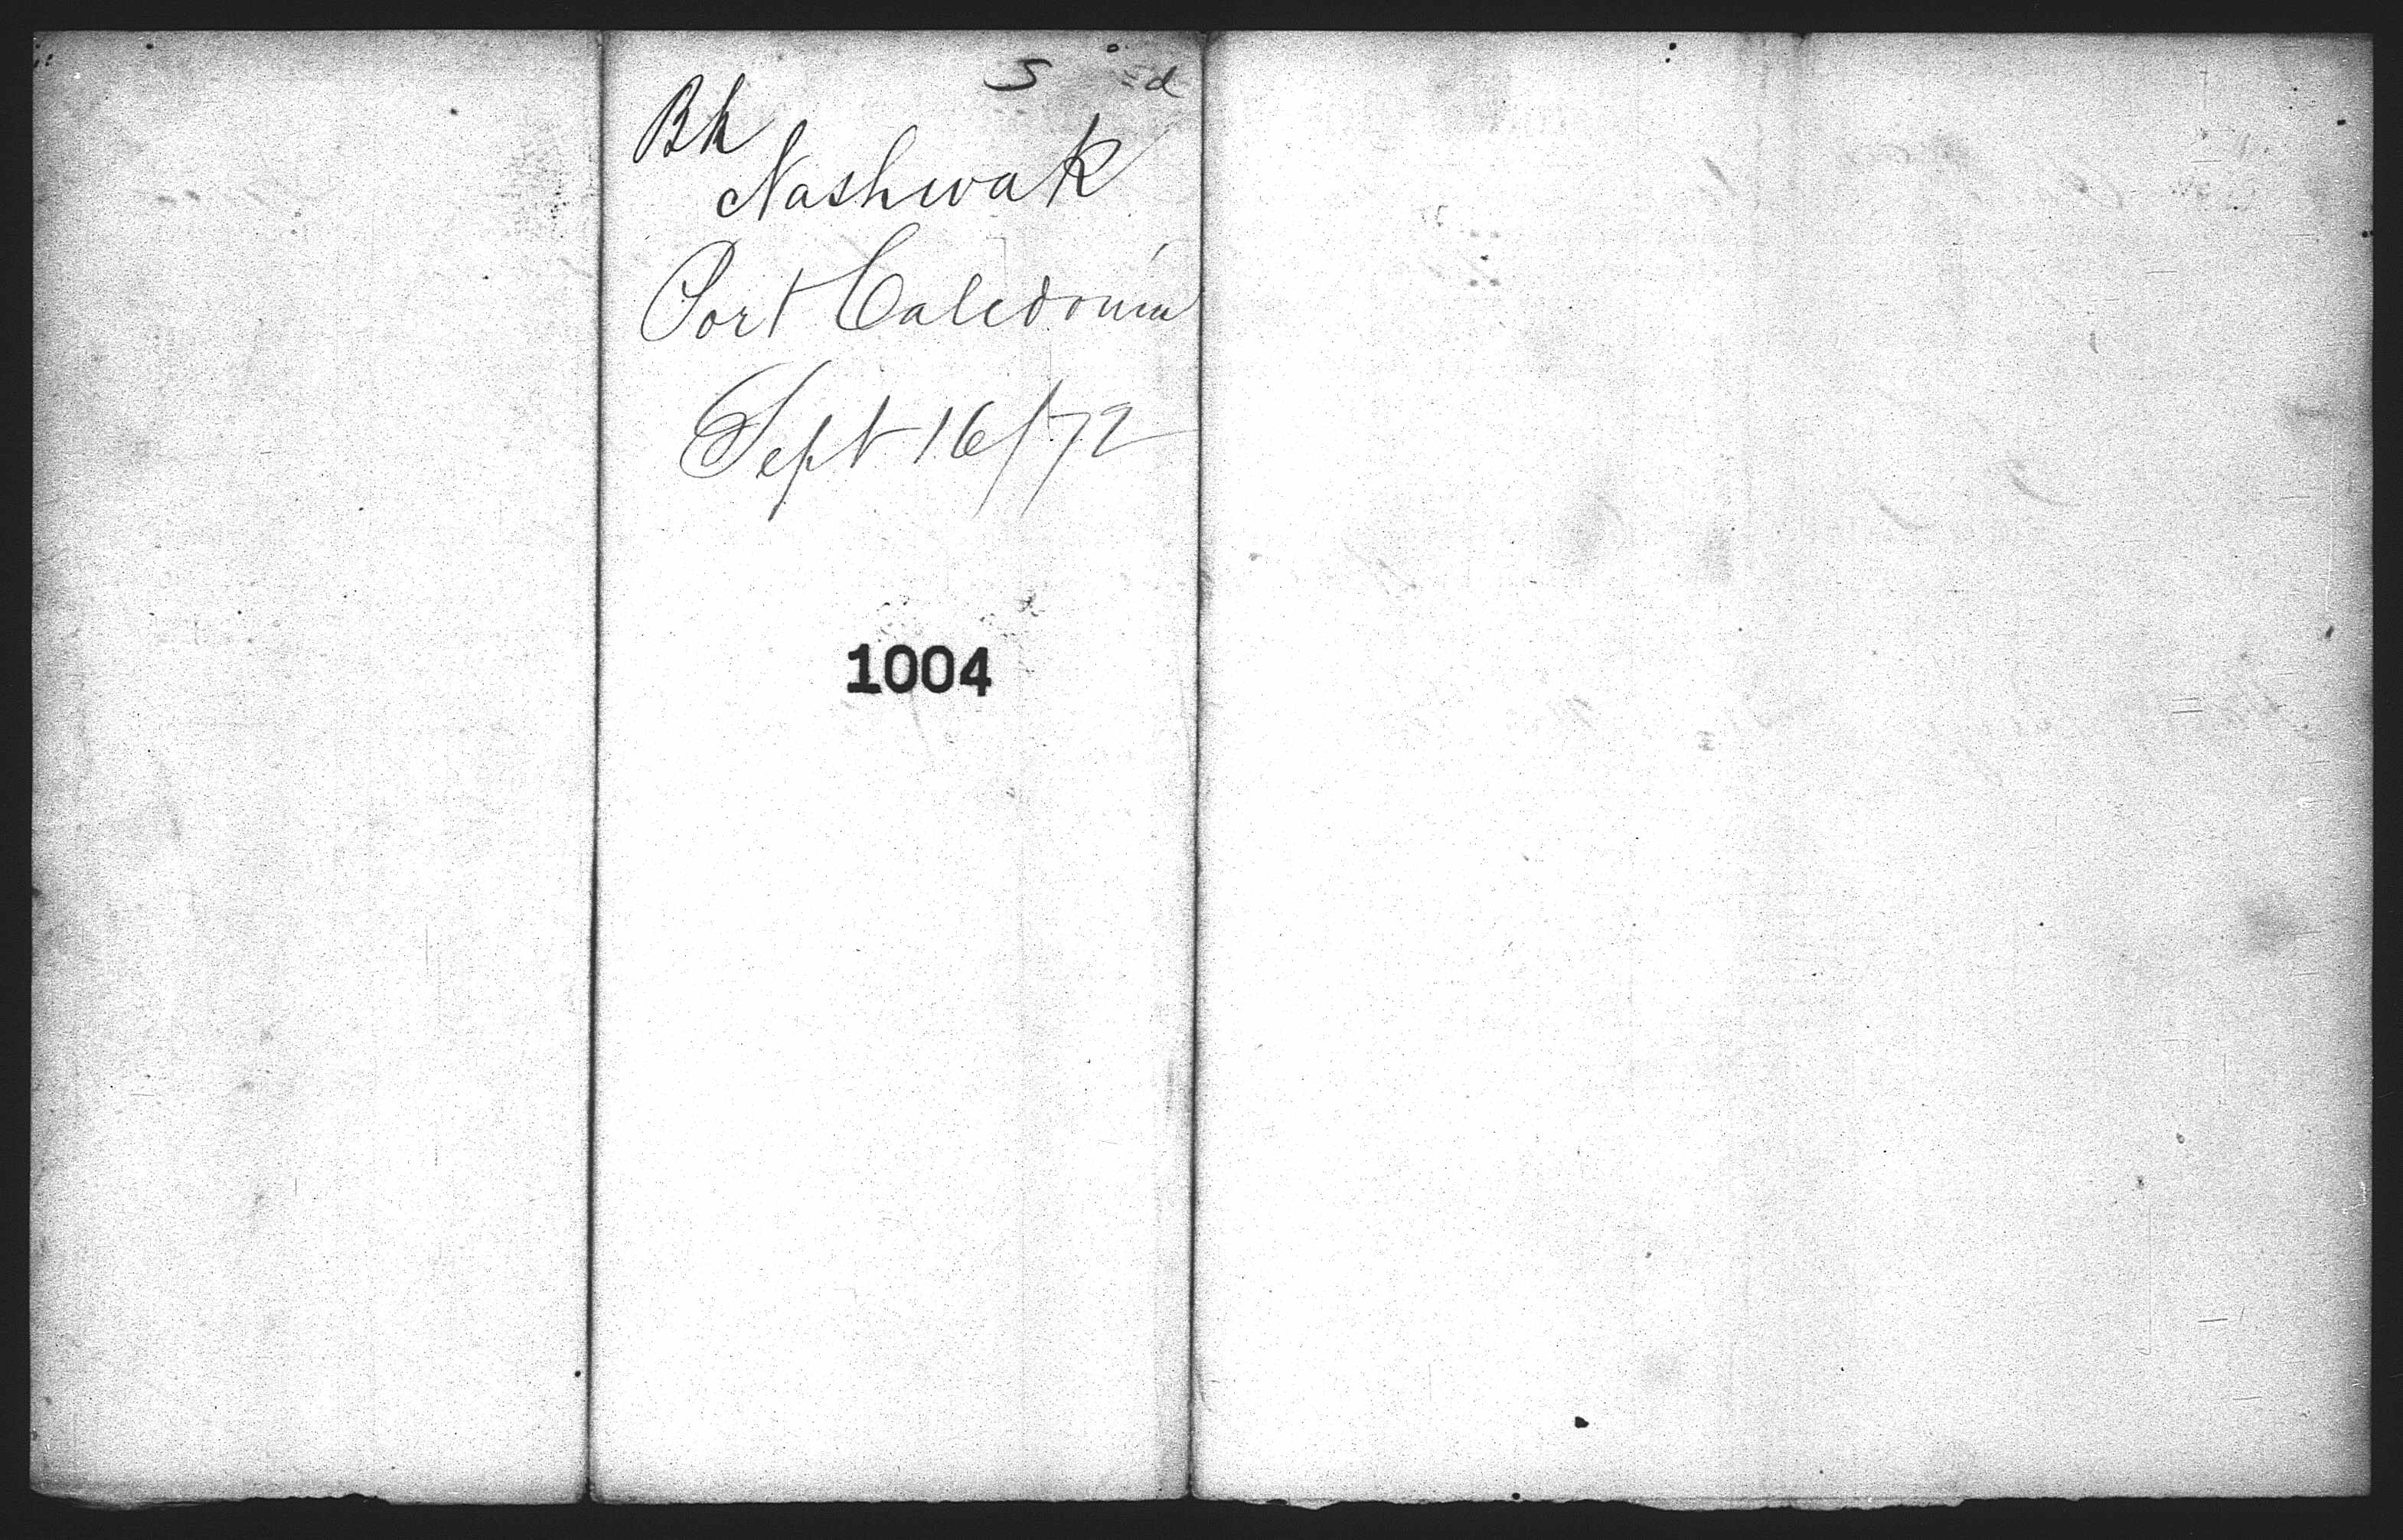 Bk
Nashwak
Port Caledonia
Sept 16/72
1004